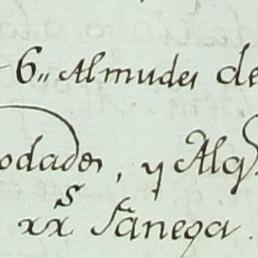 6,, Almudes de
odades, y Alq
xx.s fanega.